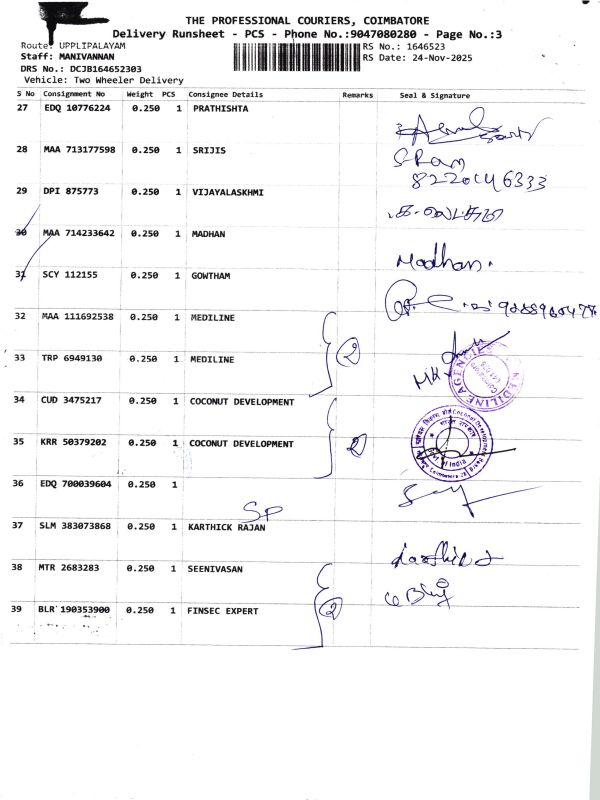 THE PROFESSIONAL COURIERS, COIMBATORE
Delivery Runsheet - PCS - Phone No.:9047080280 - Page No.:3
Route: UPPLIPALAYAM
RS No.: 1646523
Staff: MANIVANNAN
RS Date: 24-Nov-2025
DRS No.: DCJB164652303
Vehicle: Two Wheeler Delivery
S No Consignment No Weight PCS Consignee Details Remarks Seal & Signature
27 EDQ 10776224 0.250 1 PRATHISHTA
28 MAA 713177598 0.250 1 SRIJIS
SRam
29 DPI 875773 0.250 1 VIJAYALASKHMI
30 MAA 714233642 0.250 1 MADHAN
Madhan.
31 SCY 112155 0.250 1 GOWTHAM
32 MAA 111692538 0.250 1 MEDILINE
2
33 TRP 6949130 0.250 1 MEDILINE
MEDILINE AGENCIES
34 CUD 3475217 0.250 1 COCONUT DEVELOPMENT
2
35 KRR 50379202 0.250 1 COCONUT DEVELOPMENT
Coconut Development Board
Govt of India
36 EDQ 700039604 0.250 1
SP
37 SLM 383073868 0.250 1 KARTHICK RAJAN
38 MTR 2683283 0.250 1 SEENIVASAN
2
39 BLR 190353900 0.250 1 FINSEC EXPERT